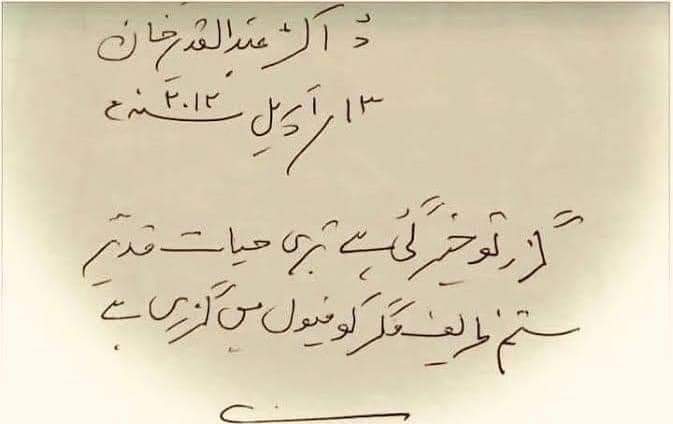 ڈاکٹر عبدالقدیر خان
۱۳/اپریل ۲۰۱۲ء
گزر تو خیر گئی ہے تیری حیات قدیر
ستم ظریف مگر کوفیوں میں گزری ہے